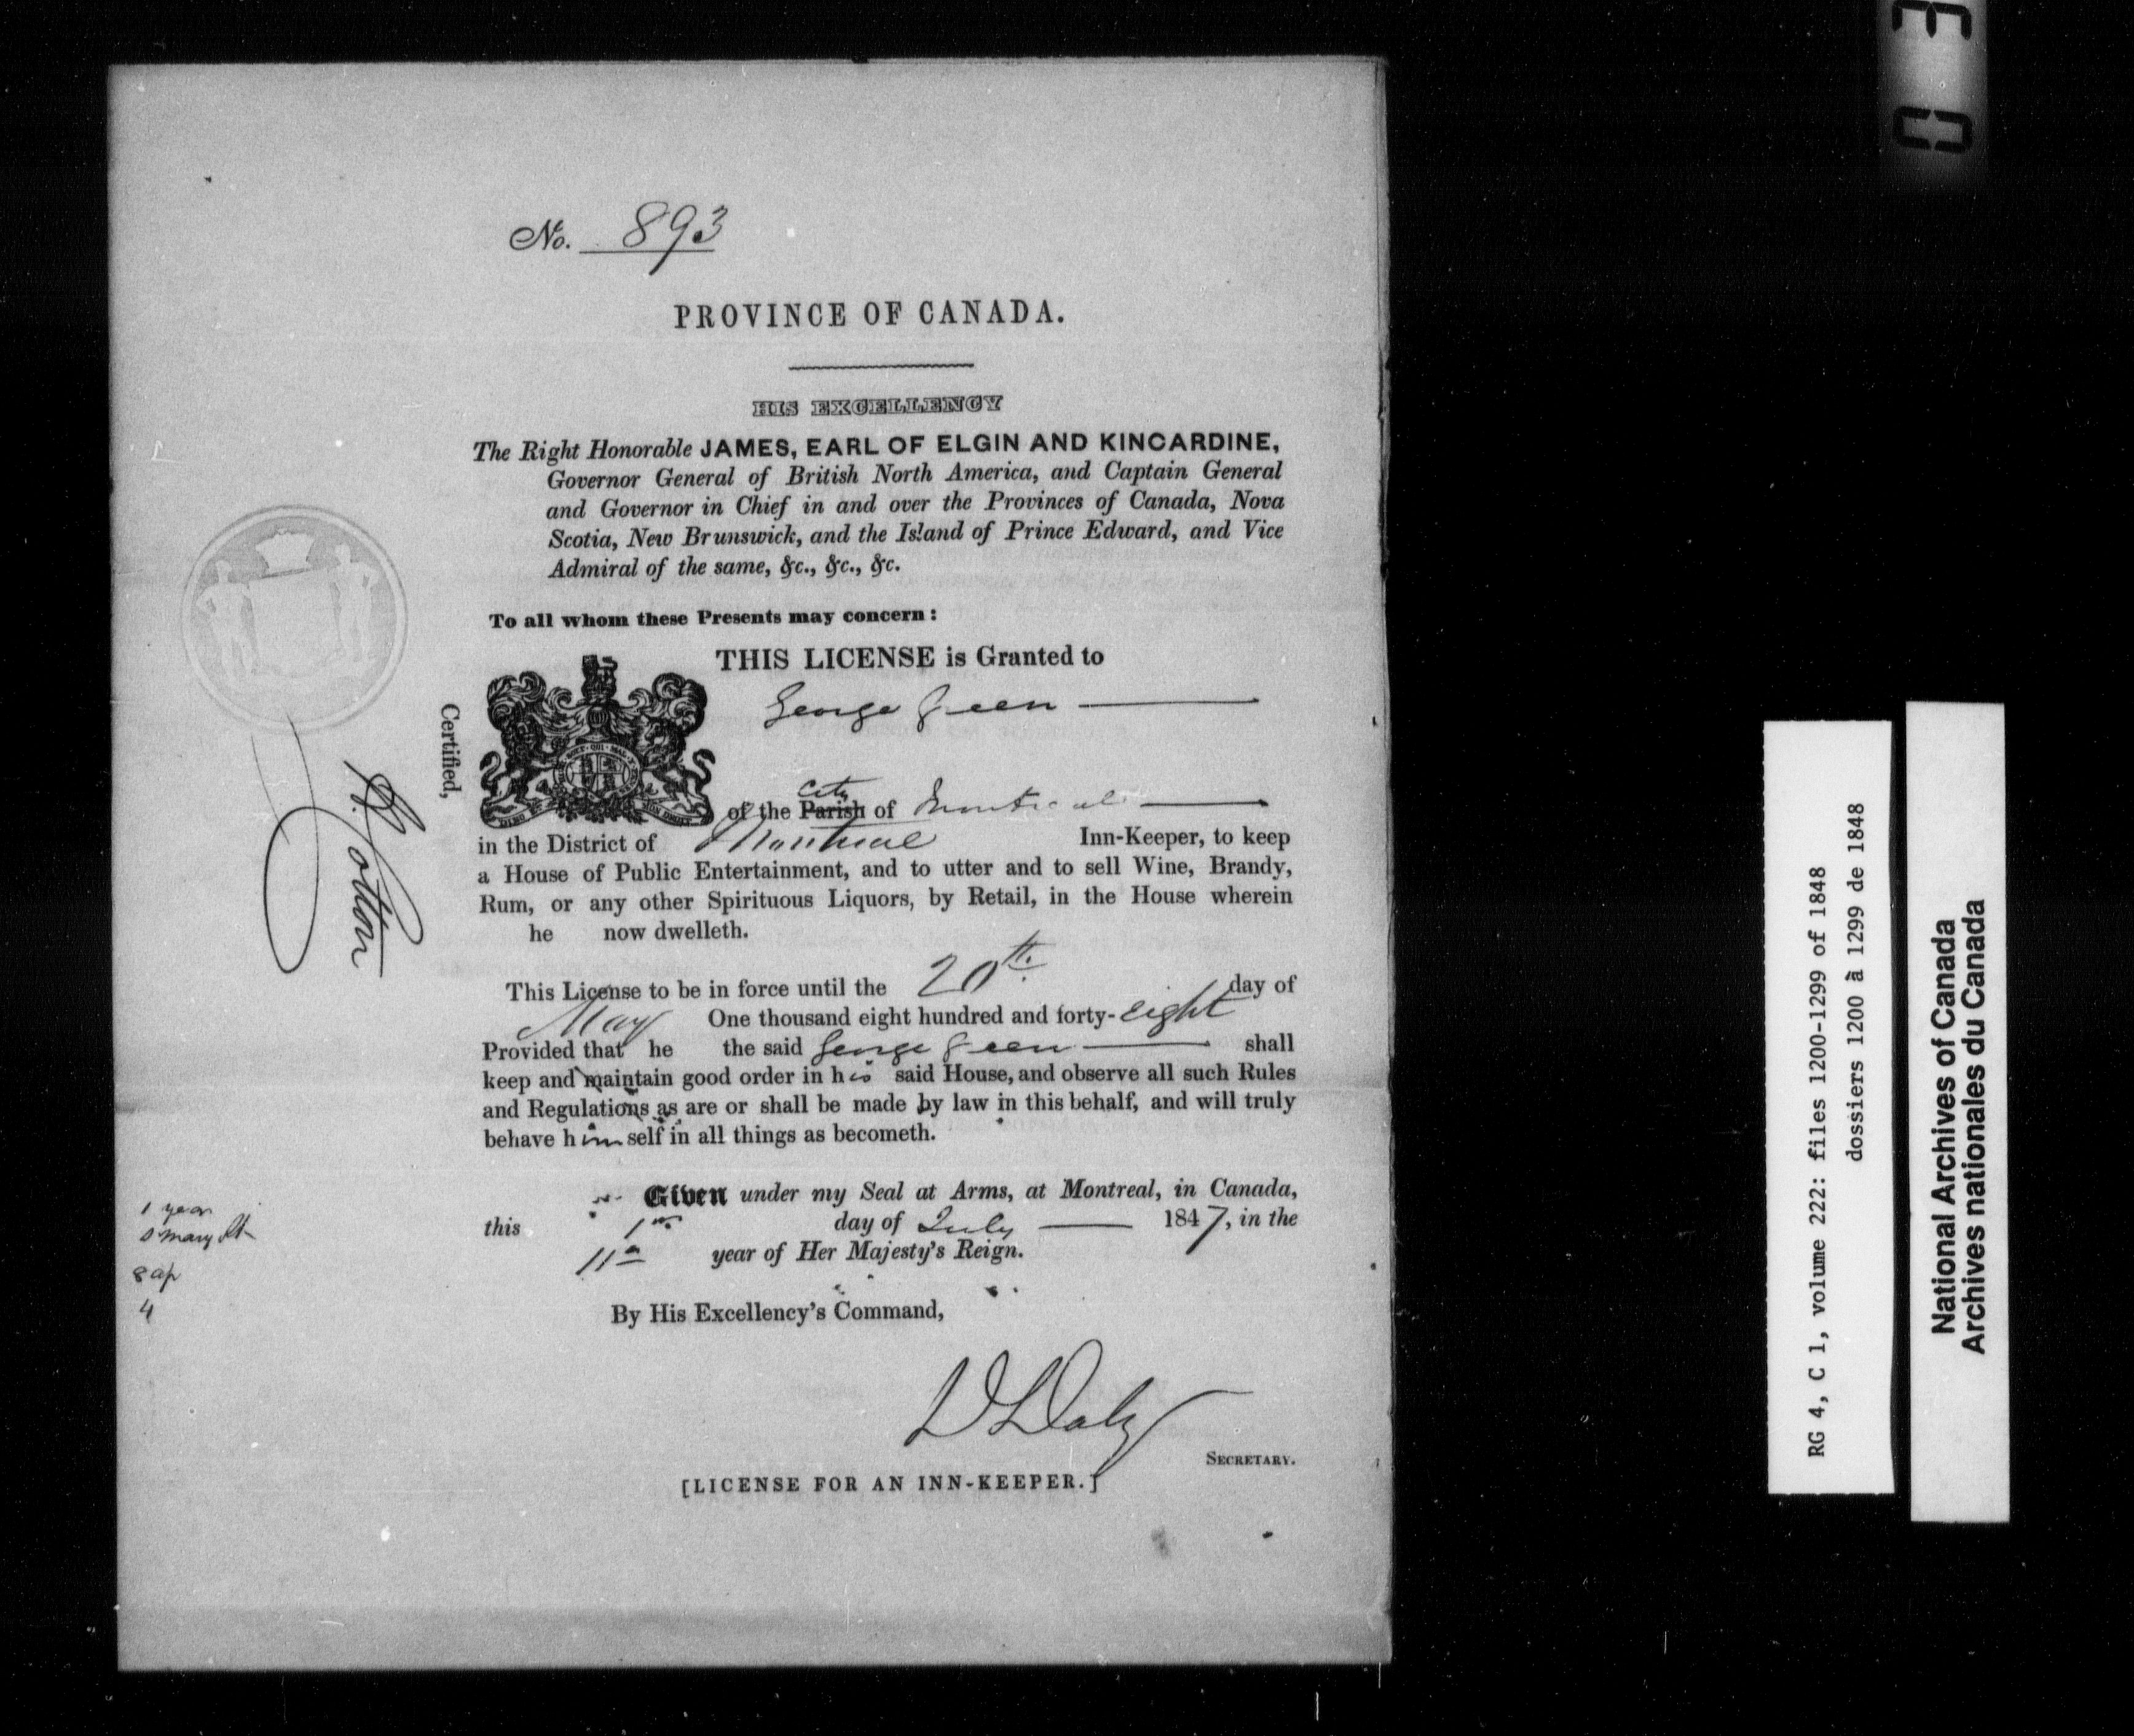 No. 893
PROVINCE OF CANADA.
HIS EXCELLENCY
The Right Honorable JAMES, EARL OF ELGIN AND KINCARDINE,
Governor General of British North America, and Captain General
and Governor in Chief in and over the Provinces of Canada, Nova
Scotia, New Brunswick, and the Island of Prince Edward, and Vice
Admiral of the same, &c., &c., &c.
To all whom these Presents may concern:
THIS LICENSE is Granted to
George Green
City
of the Parish of Montreal
in the District of Montreal Inn-Keeper, to keep
a House of Public Entertainment, and to utter and to sell Wine, Brandy,
Rum, or any other Spirituous Liquors, by Retail, in the House wherein
he now dwelleth.
This License to be in force until the 20th day of
May One thousand eight hundred and forty-eight
Provided that he the said George Green shall
keep and maintain good order in his said House, and observe all such Rules
and Regulations as are or shall be made by law in this behalf, and will truly
behave himself in all things as becometh.
Given under my Seal at Arms, at Montreal, in Canada,
this 1st day of July 1847, in the
11th year of Her Majesty's Reign.
By His Excellency's Command,
D Daly
SECRETARY.
[LICENSE FOR AN INN-KEEPER.]
Certified,
Cotton
1 year
Mary St
8 ap
4
RG 4, C 1, volume 222: files 1200-1299 of 1848
dossiers 1200 à 1299 de 1848
National Archives of Canada
Archives nationales du Canada